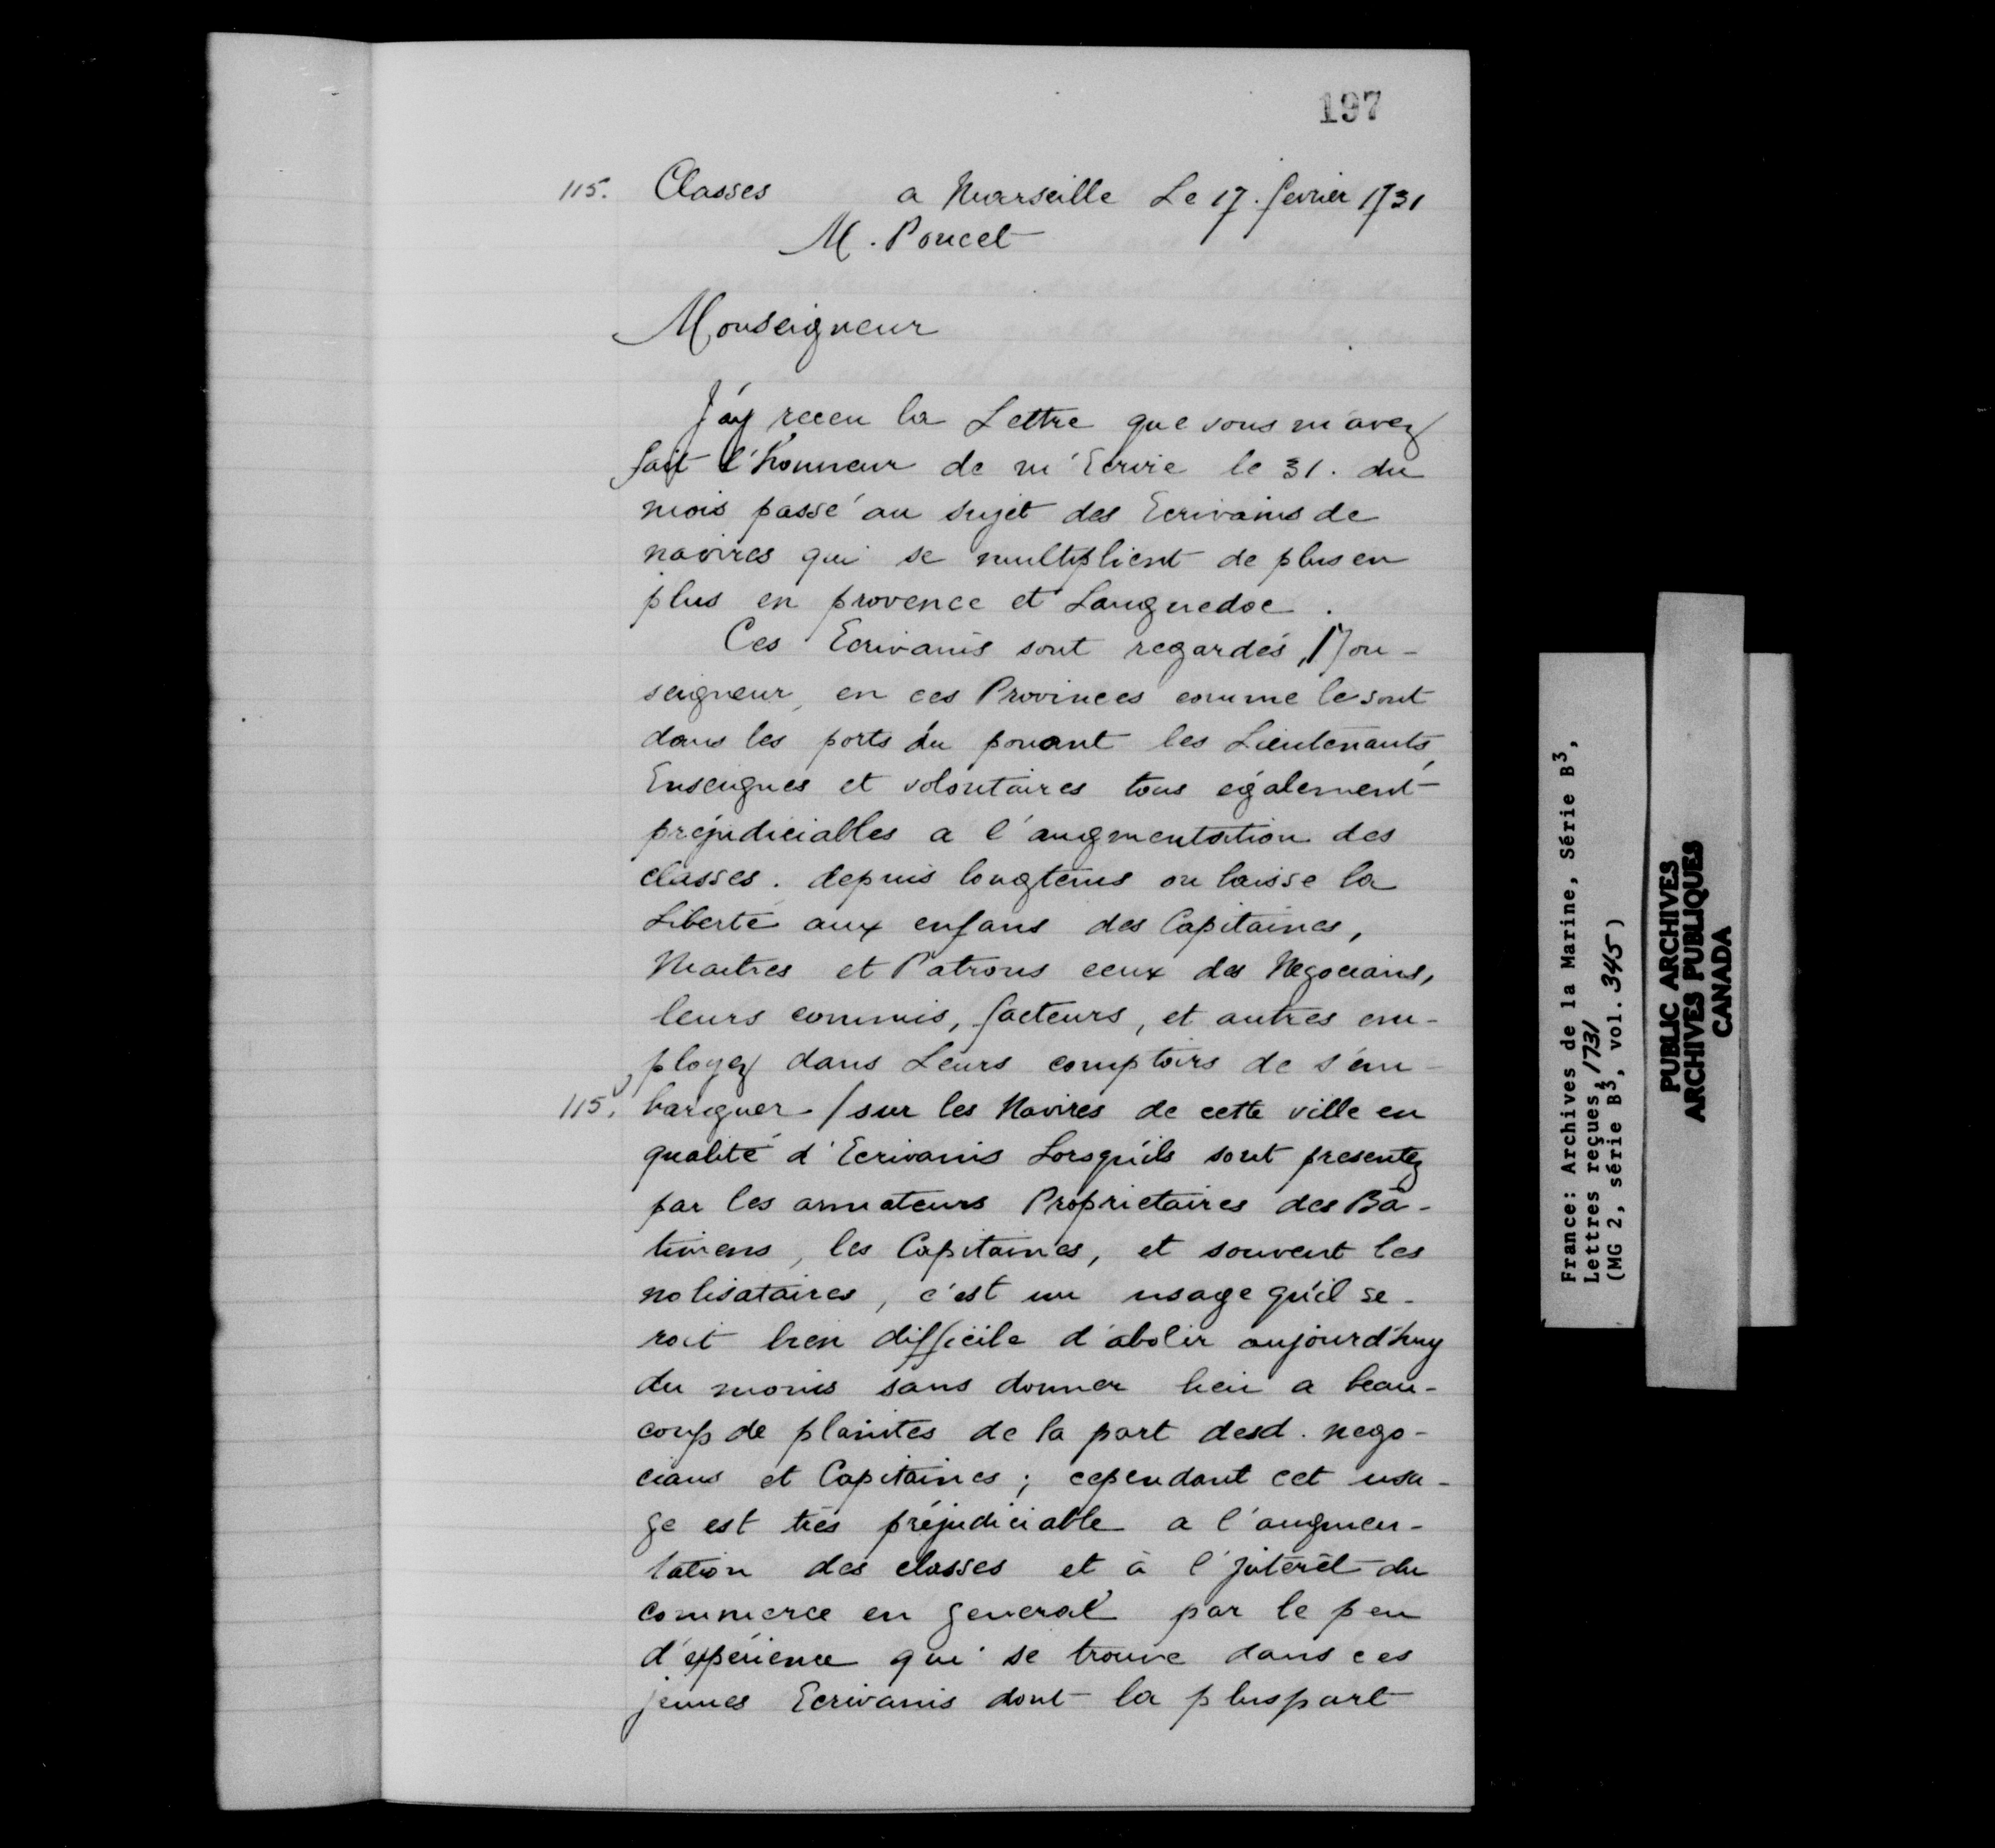 197
115. Classes a Marseille Le 17. fevrier 1731
M. Poucet
Monseigneur
J'ay receu la Lettre que vous m'avez
fait l'honneur de m'Ecrire le 31. du
mois passé au sujet des Ecrivains de
navires qui se multiplient de plus en
plus en provence et Languedoc.
Ces Ecrivains sont regardés, Mon-
seigneur, en ces Provinces comme le sont
dans les ports du ponant les Lieutenants,
Enseignes et volontaires tous également
préjudiciables a l'augmentation des
classes. depuis longtems on laisse la
Liberté aux enfans des Capitaines,
Maitres et Patrons ceux des Negocians,
leurs commis, facteurs, et autres em-
ployez dans Leurs comptoirs de s'em-
115v. barquer / sur les Navires de cette ville en
qualité d'Ecrivains Lorsqu'ils sont presentez
par les armateurs Proprietaires des Bâ-
timens, les Capitaines, et souvent les
nolisataires, c'est un usage qu'il se-
roit bien difficile d'abolir aujourd'huy
du moins sans donner lieu a beau-
coup de plaintes de la part desd. nego-
cians et Capitaines; cependant cet usa-
ge est très préjudiciable a l'augmen-
tation des classes et à l'Jnterêt du
commerce en general par le peu
d'expérience qui se trouve dans ces
jeunes Ecrivains dont la pluspart
France: Archives de la Marine, Série B3,
Lettres reçues, 1731
(MG 2, série B3, vol. 345)
PUBLIC ARCHIVES
ARCHIVES PUBLIQUES
CANADA